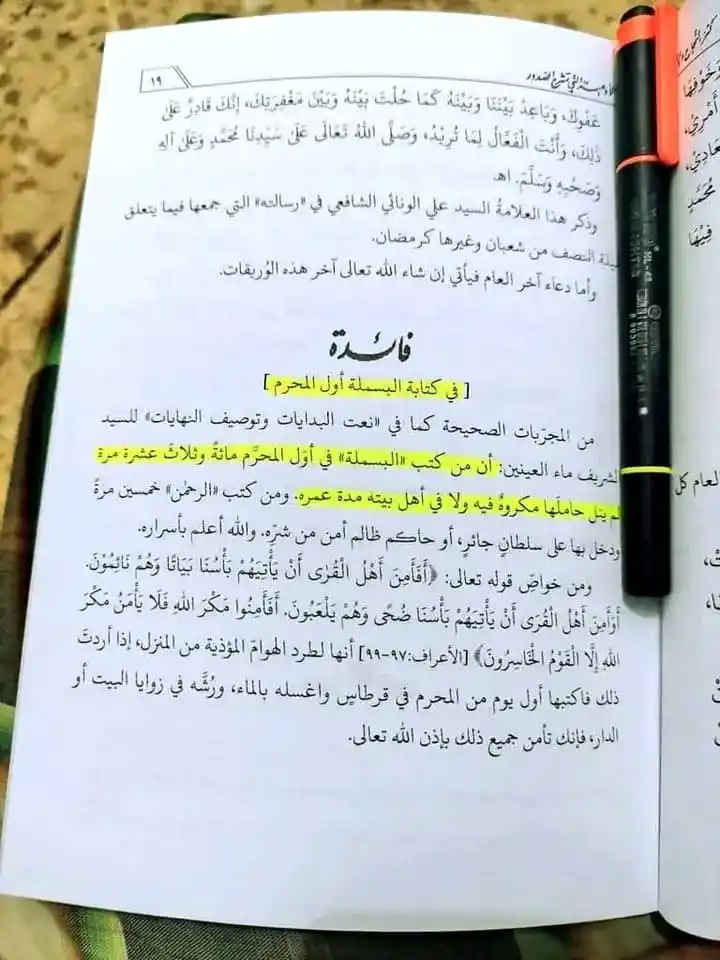 ١٩
عَفْوِكَ، وَبَاعِدْ بَيْنَنَا وَبَيْنَهُ كَمَا حُلْتَ بَيْنَهُ وَبَيْنَ مَغْفِرَتِكَ، إِنَّكَ قَادِرٌ عَلَى
ذَلِكَ، وَأَنْتَ الْفَعَّالُ لِمَا تُرِيْدُ، وَصَلَّى اللهُ تَعَالَى عَلَى سَيِّدِنَا مُحَمَّدٍ وَعَلَى آلِهِ
وَصَحْبِهِ وَسَلَّمَ. اهـ
وذكر هذا العلامةُ السيد علي الونائي الشافعي في «رسالته» التي جمعها فيما يتعلق
بليلة النصف من شعبان وغيرها كرمضان.
وأما دعاء آخر العام فيأتي إن شاء الله تعالى آخر هذه الوُريقات.
فائدة
[ في كتابة البسملة أول المحرم ]
من المجرّبات الصحيحة كما في «نعت البدايات وتوصيف النهايات» للسيد
الشريف ماء العينين: أن من كتب «البسملة» في أوّل المحرّم مائةً وثلاثَ عشرة مرة
لم ينل حاملَها مكروهٌ فيه ولا في أهل بيته مدة عمره. ومن كتب «الرحمٰن» خمسين مرةً
ودخل بها على سلطانٍ جائرٍ، أو حاكم ظالم أمن من شرّه. والله أعلم بأسراره.
ومن خواصِّ قوله تعالى: ﴿أَفَأَمِنَ أَهْلُ الْقُرَىٰ أَنْ يَأْتِيَهُمْ بَأْسُنَا بَيَاتًا وَهُمْ نَائِمُوْنَ.
أَوَأَمِنَ أَهْلُ الْقُرَى أَنْ يَأْتِيَهُمْ بَأْسُنَا ضُحًى وَهُمْ يَلْعَبُونَ. أَفَأَمِنُوا مَكْرَ اللهِ فَلَا يَأْمَنُ مَكْرَ
اللهِ إِلَّا الْقَوْمُ الْخَاسِرُونَ﴾ [الأعراف:٩٧-٩٩] أنها لطرد الهوامّ المؤذية من المنزل، إذا أردتَ
ذلك فاكتبها أول يوم من المحرم في قرطاسٍ واغسله بالماء، ورُشَّه في زوايا البيت أو
الدار، فإنك تأمن جميع ذلك بإذن الله تعالى.
مُحَمَّدٍ
فِيْهَا
العام كل